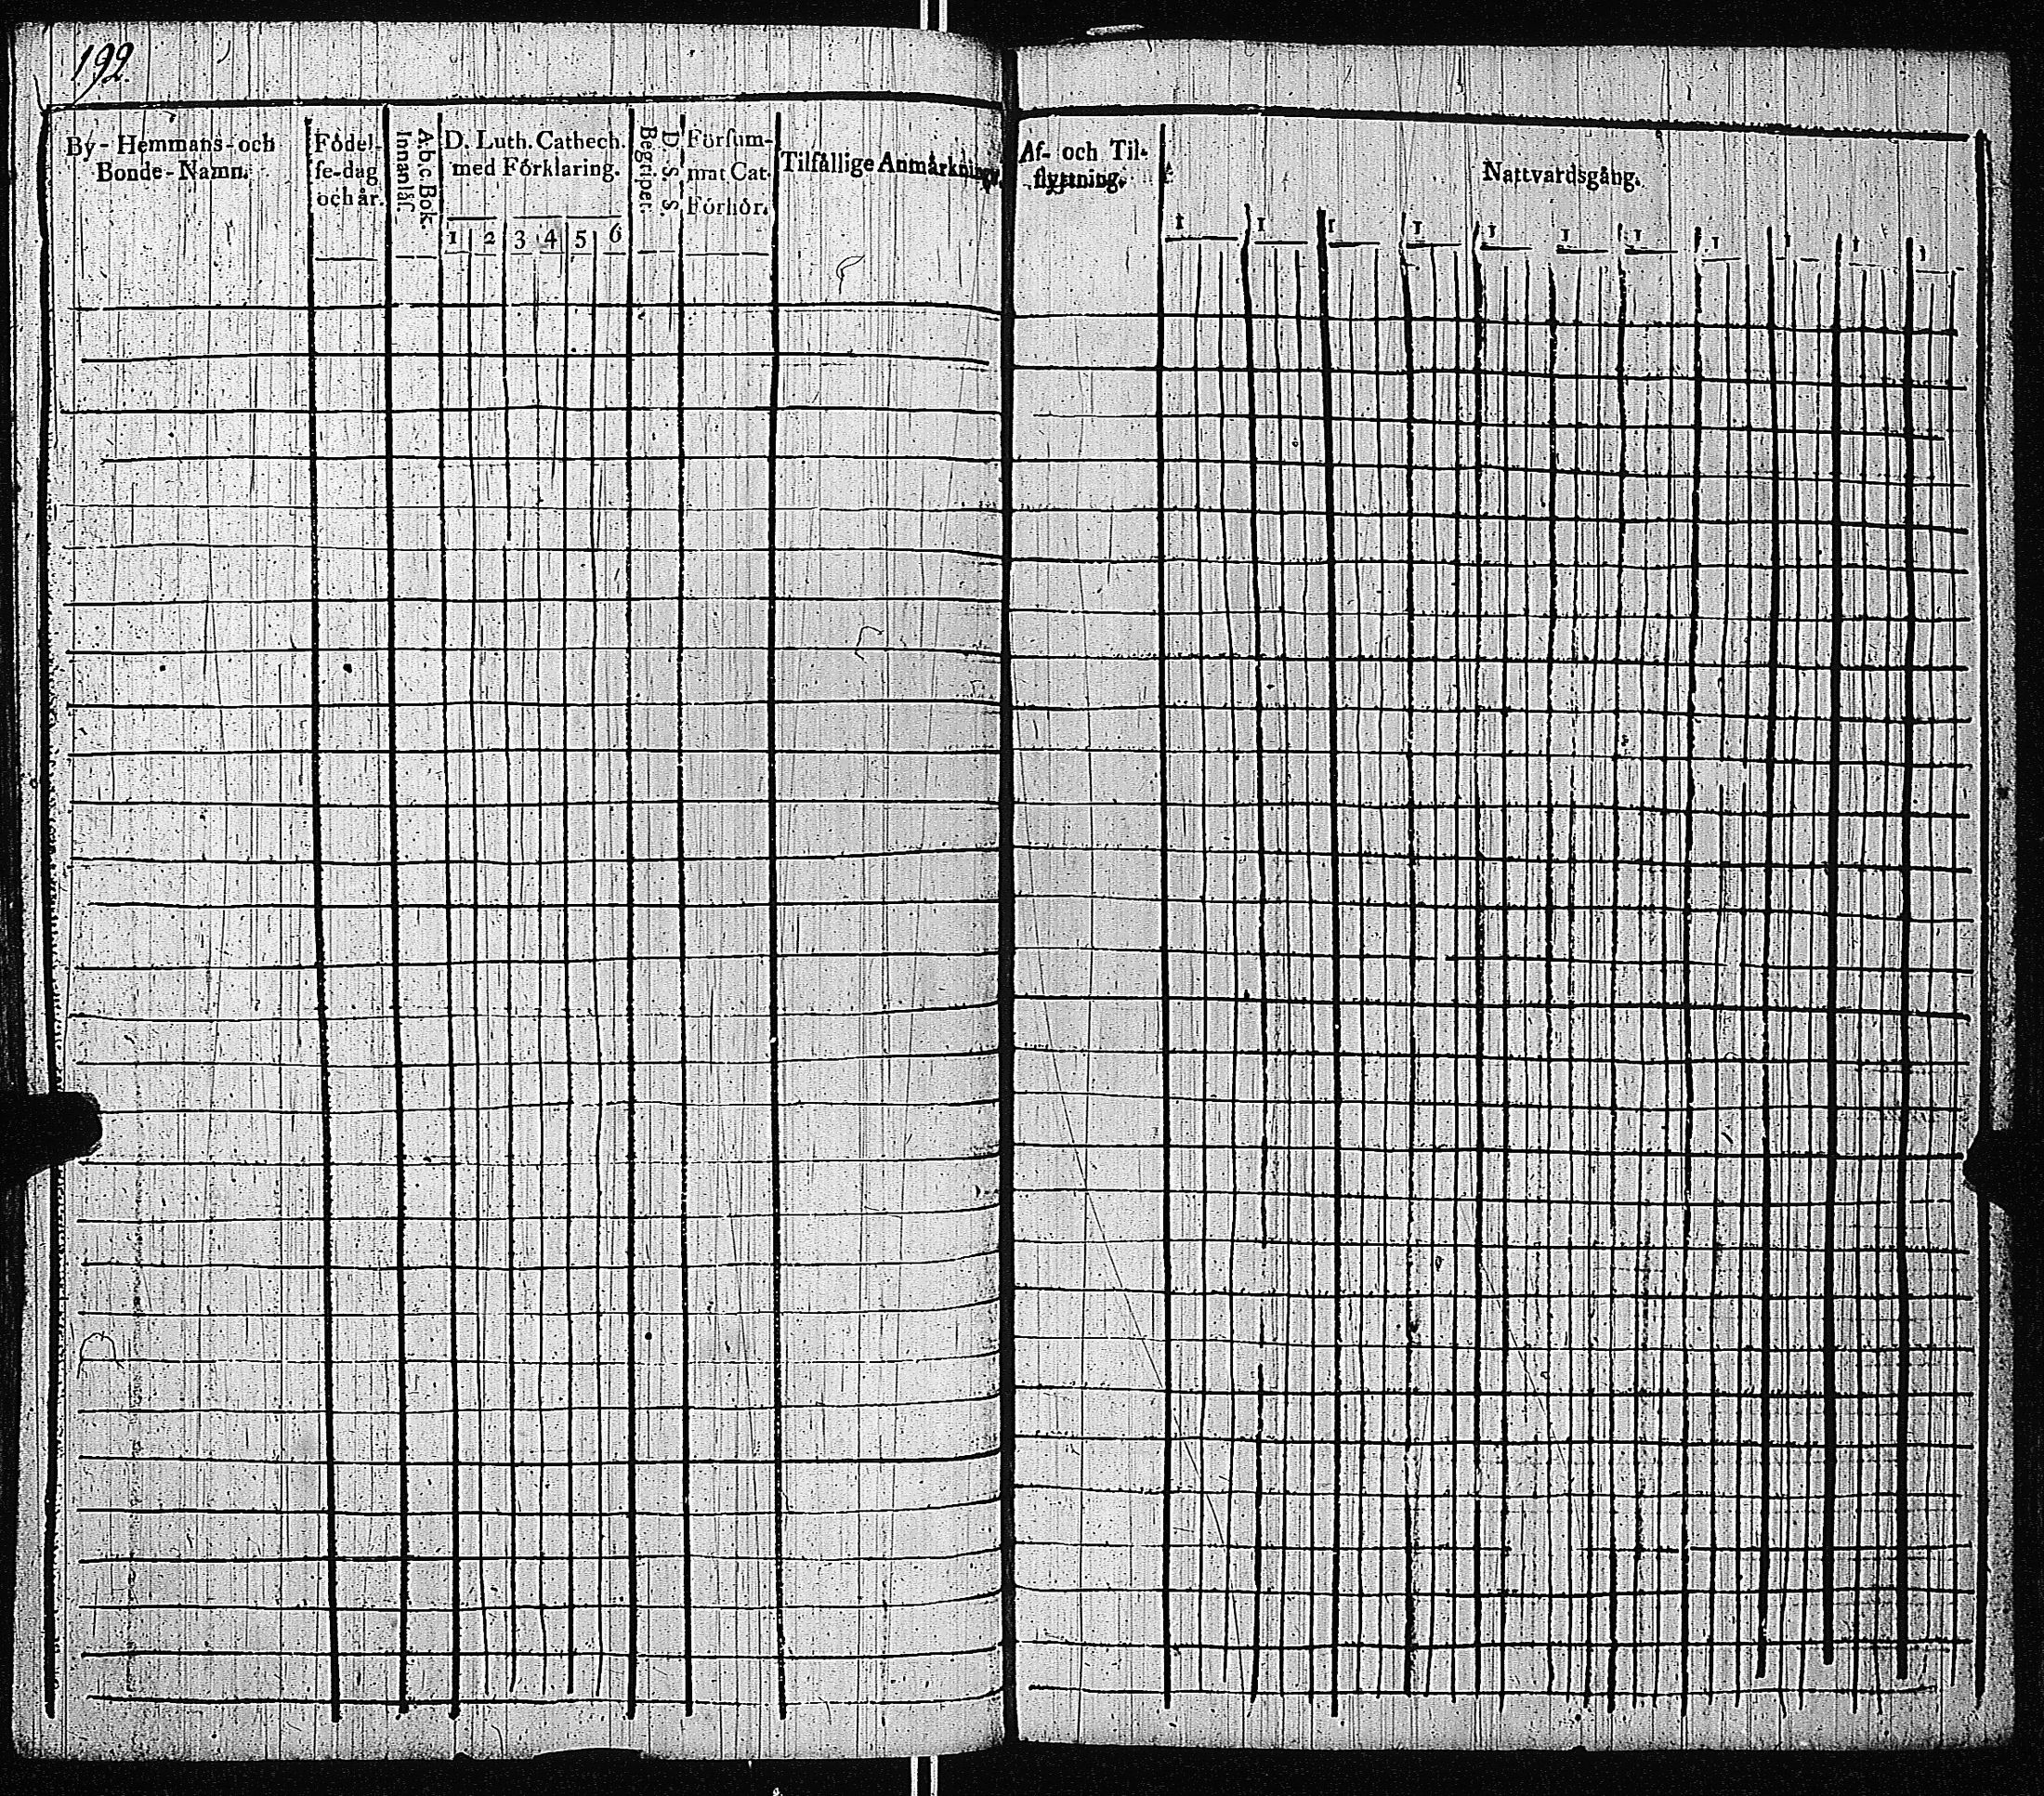 192.
By- Hemmans- och
Bonde-Namn.
Födel-
ſe-dag
och år.
A.b.c.Bok.
Innanläſ.
D. Luth. Cathech.
med Förklaring.
1 2 3 4 5 6
D. S. S.
Begriper.
Förſum-
mat Cat.
Förhör.
Tilfällige Anmärkningar.
Af- och Til-
flyttning.
Nattvardsgång.
1 1 1 1 1 1 1 1 1 1 1